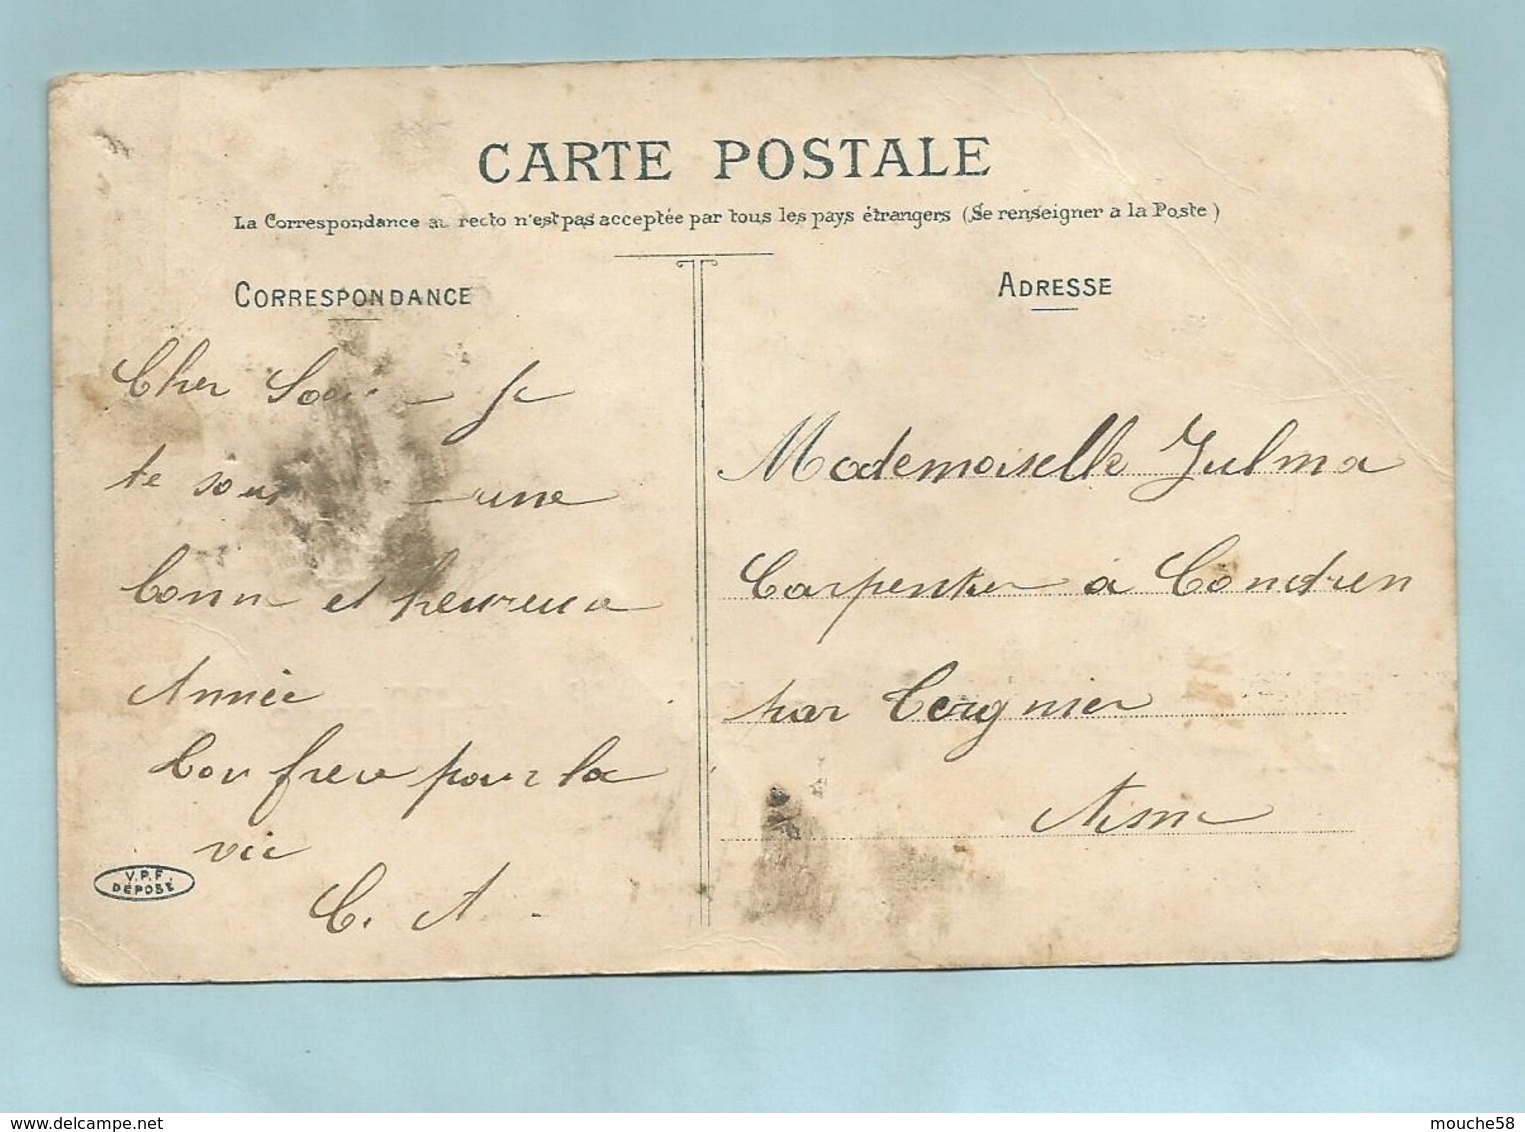 CARTE POSTALE
La Correspondance au recto n'est pas acceptée par tous les pays étrangers (Se renseigner a la Poste)
CORRESPONDANCE
Cher Je
te une
bonn et heureuse
Année
ton frere pour la
vie
C. A.
V.P.F.
DÉPOSÉ
ADRESSE
Mademoiselle Julma
Carpentier à Condren
par Tergnier
Aisne
mouche58